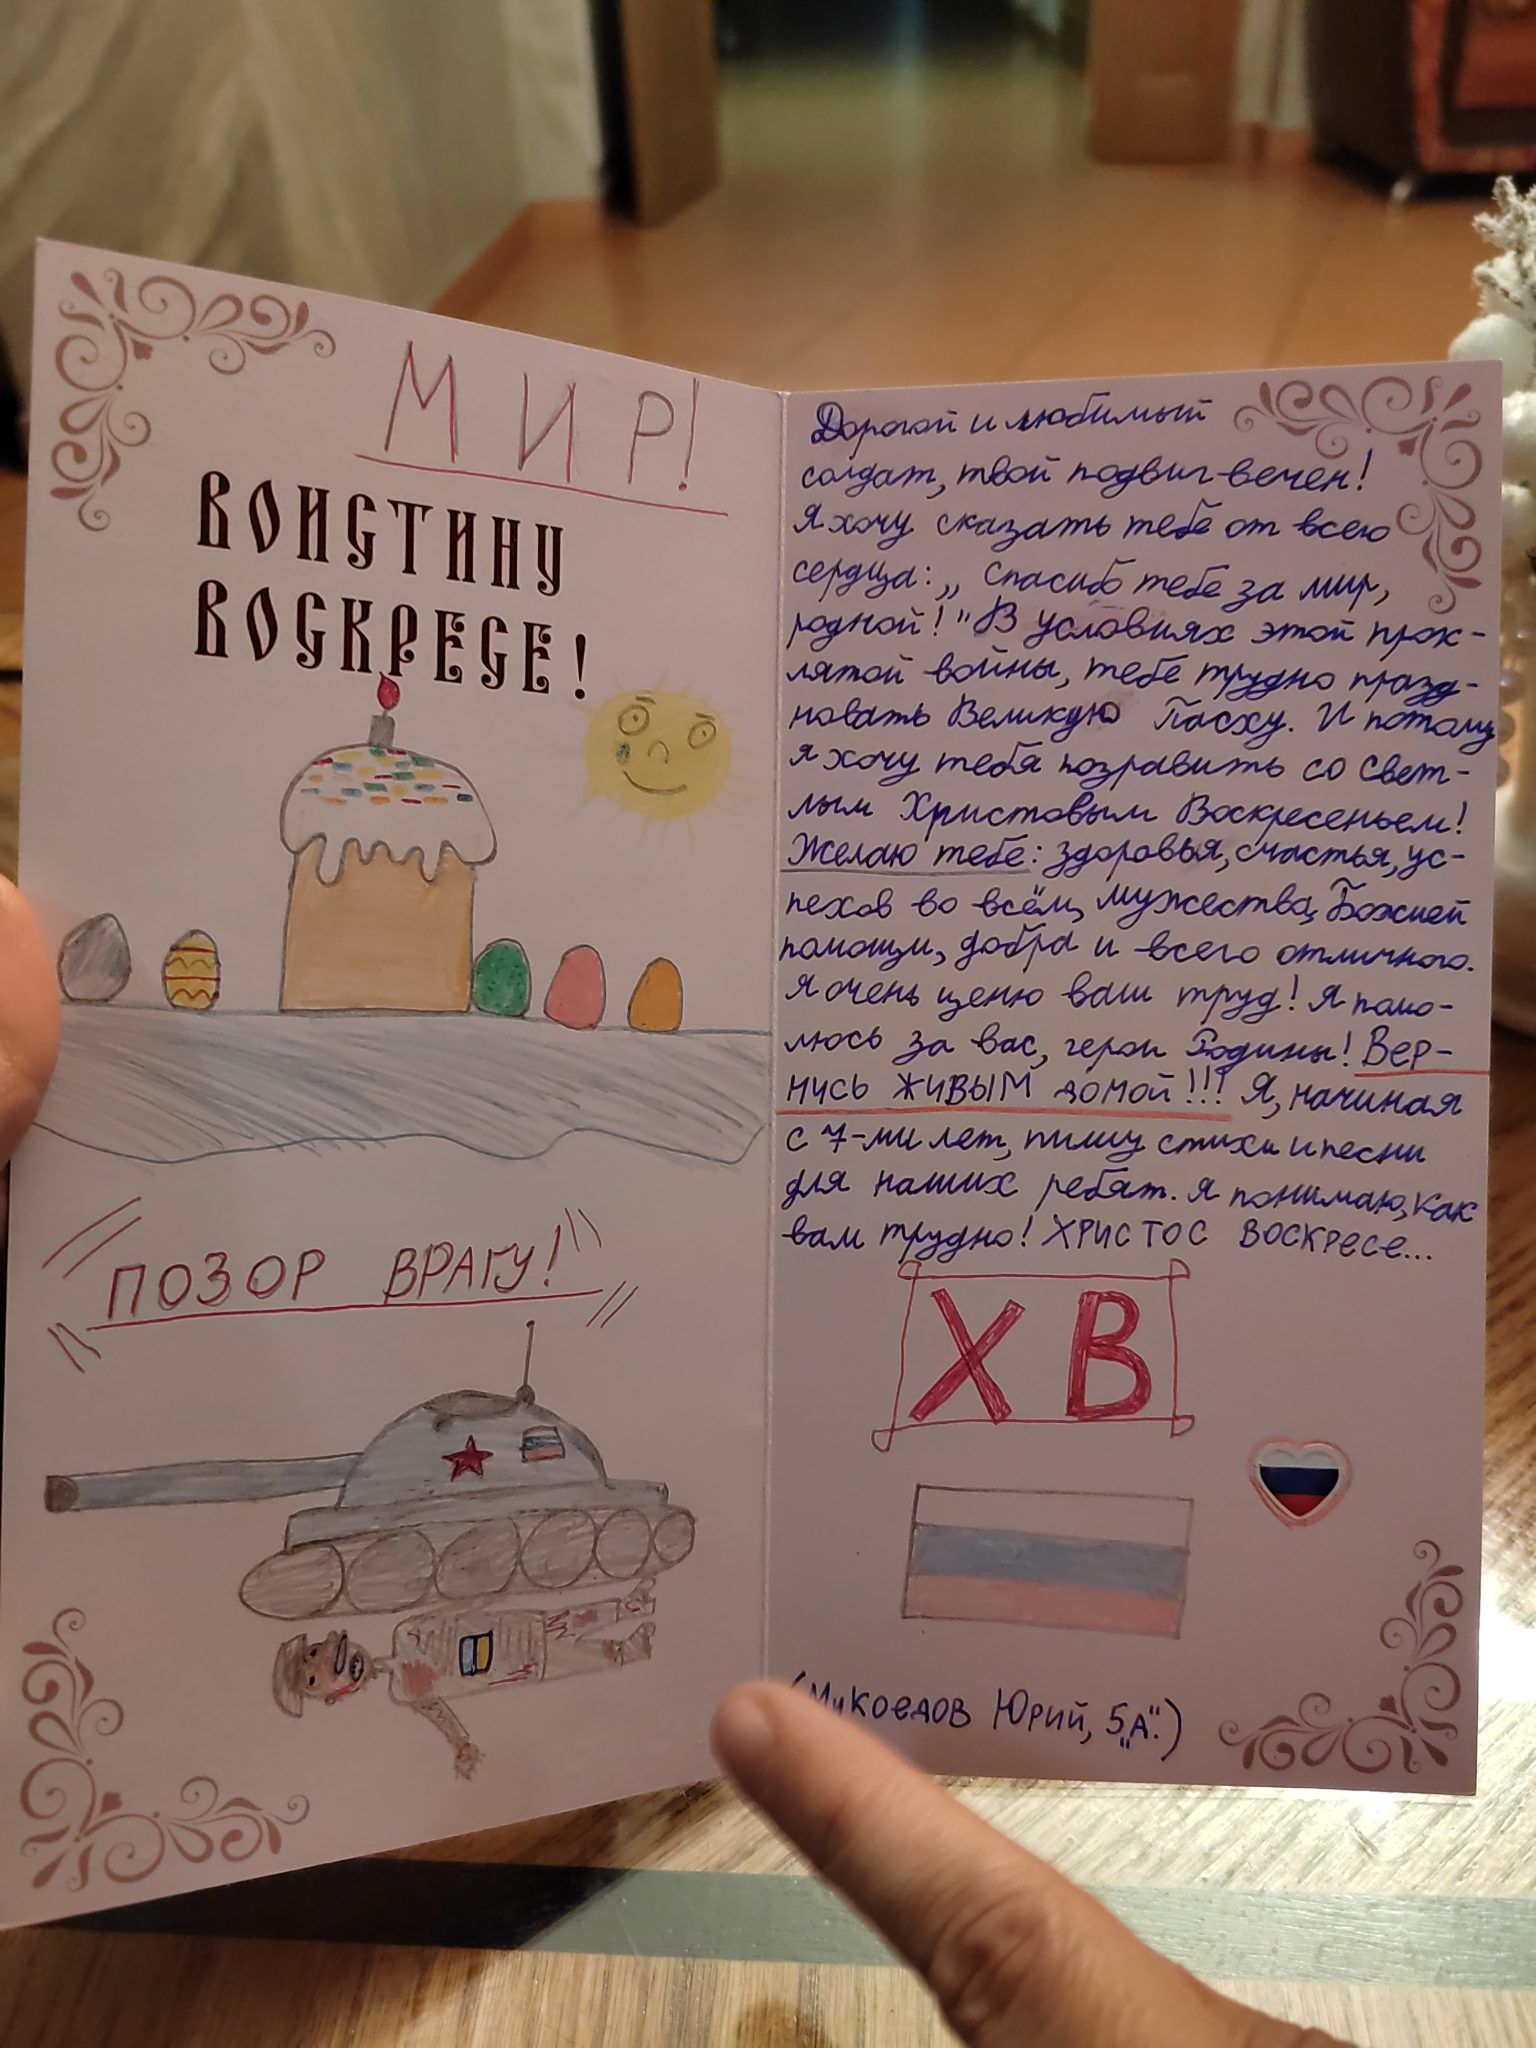 МИР!
ВОИСТИНУ
ВОСКРЕСЕ!
ПОЗОР ВРАГУ!
Дорогой и любимый
солдат, твой подвиг вечен!
Я хочу сказать тебе от всего
сердца: „Спасибо тебе за мир,
родной!" В условиях этой прок-
лятой войны, тебе трудно празд-
новать Великую Пасху. И потому
я хочу тебя позравить со Свет-
лым Христовым Воскресеньем!
Желаю тебе: здоровья, счастья, ус-
пехов во всём, мужества, Божией
помощи, добра и всего отличного.
Я очень ценю ваш труд! Я помо-
люсь за вас, герои Родины! Вер-
нись живым домой!!! Я, начиная
с 7-ми лет, пишу стихи и песни
для наших ребят. Я понимаю, как
вам трудно! ХРИСТОС ВОСКРЕСЕ...
ХВ
(Мукоедов Юрий, 5„А".)